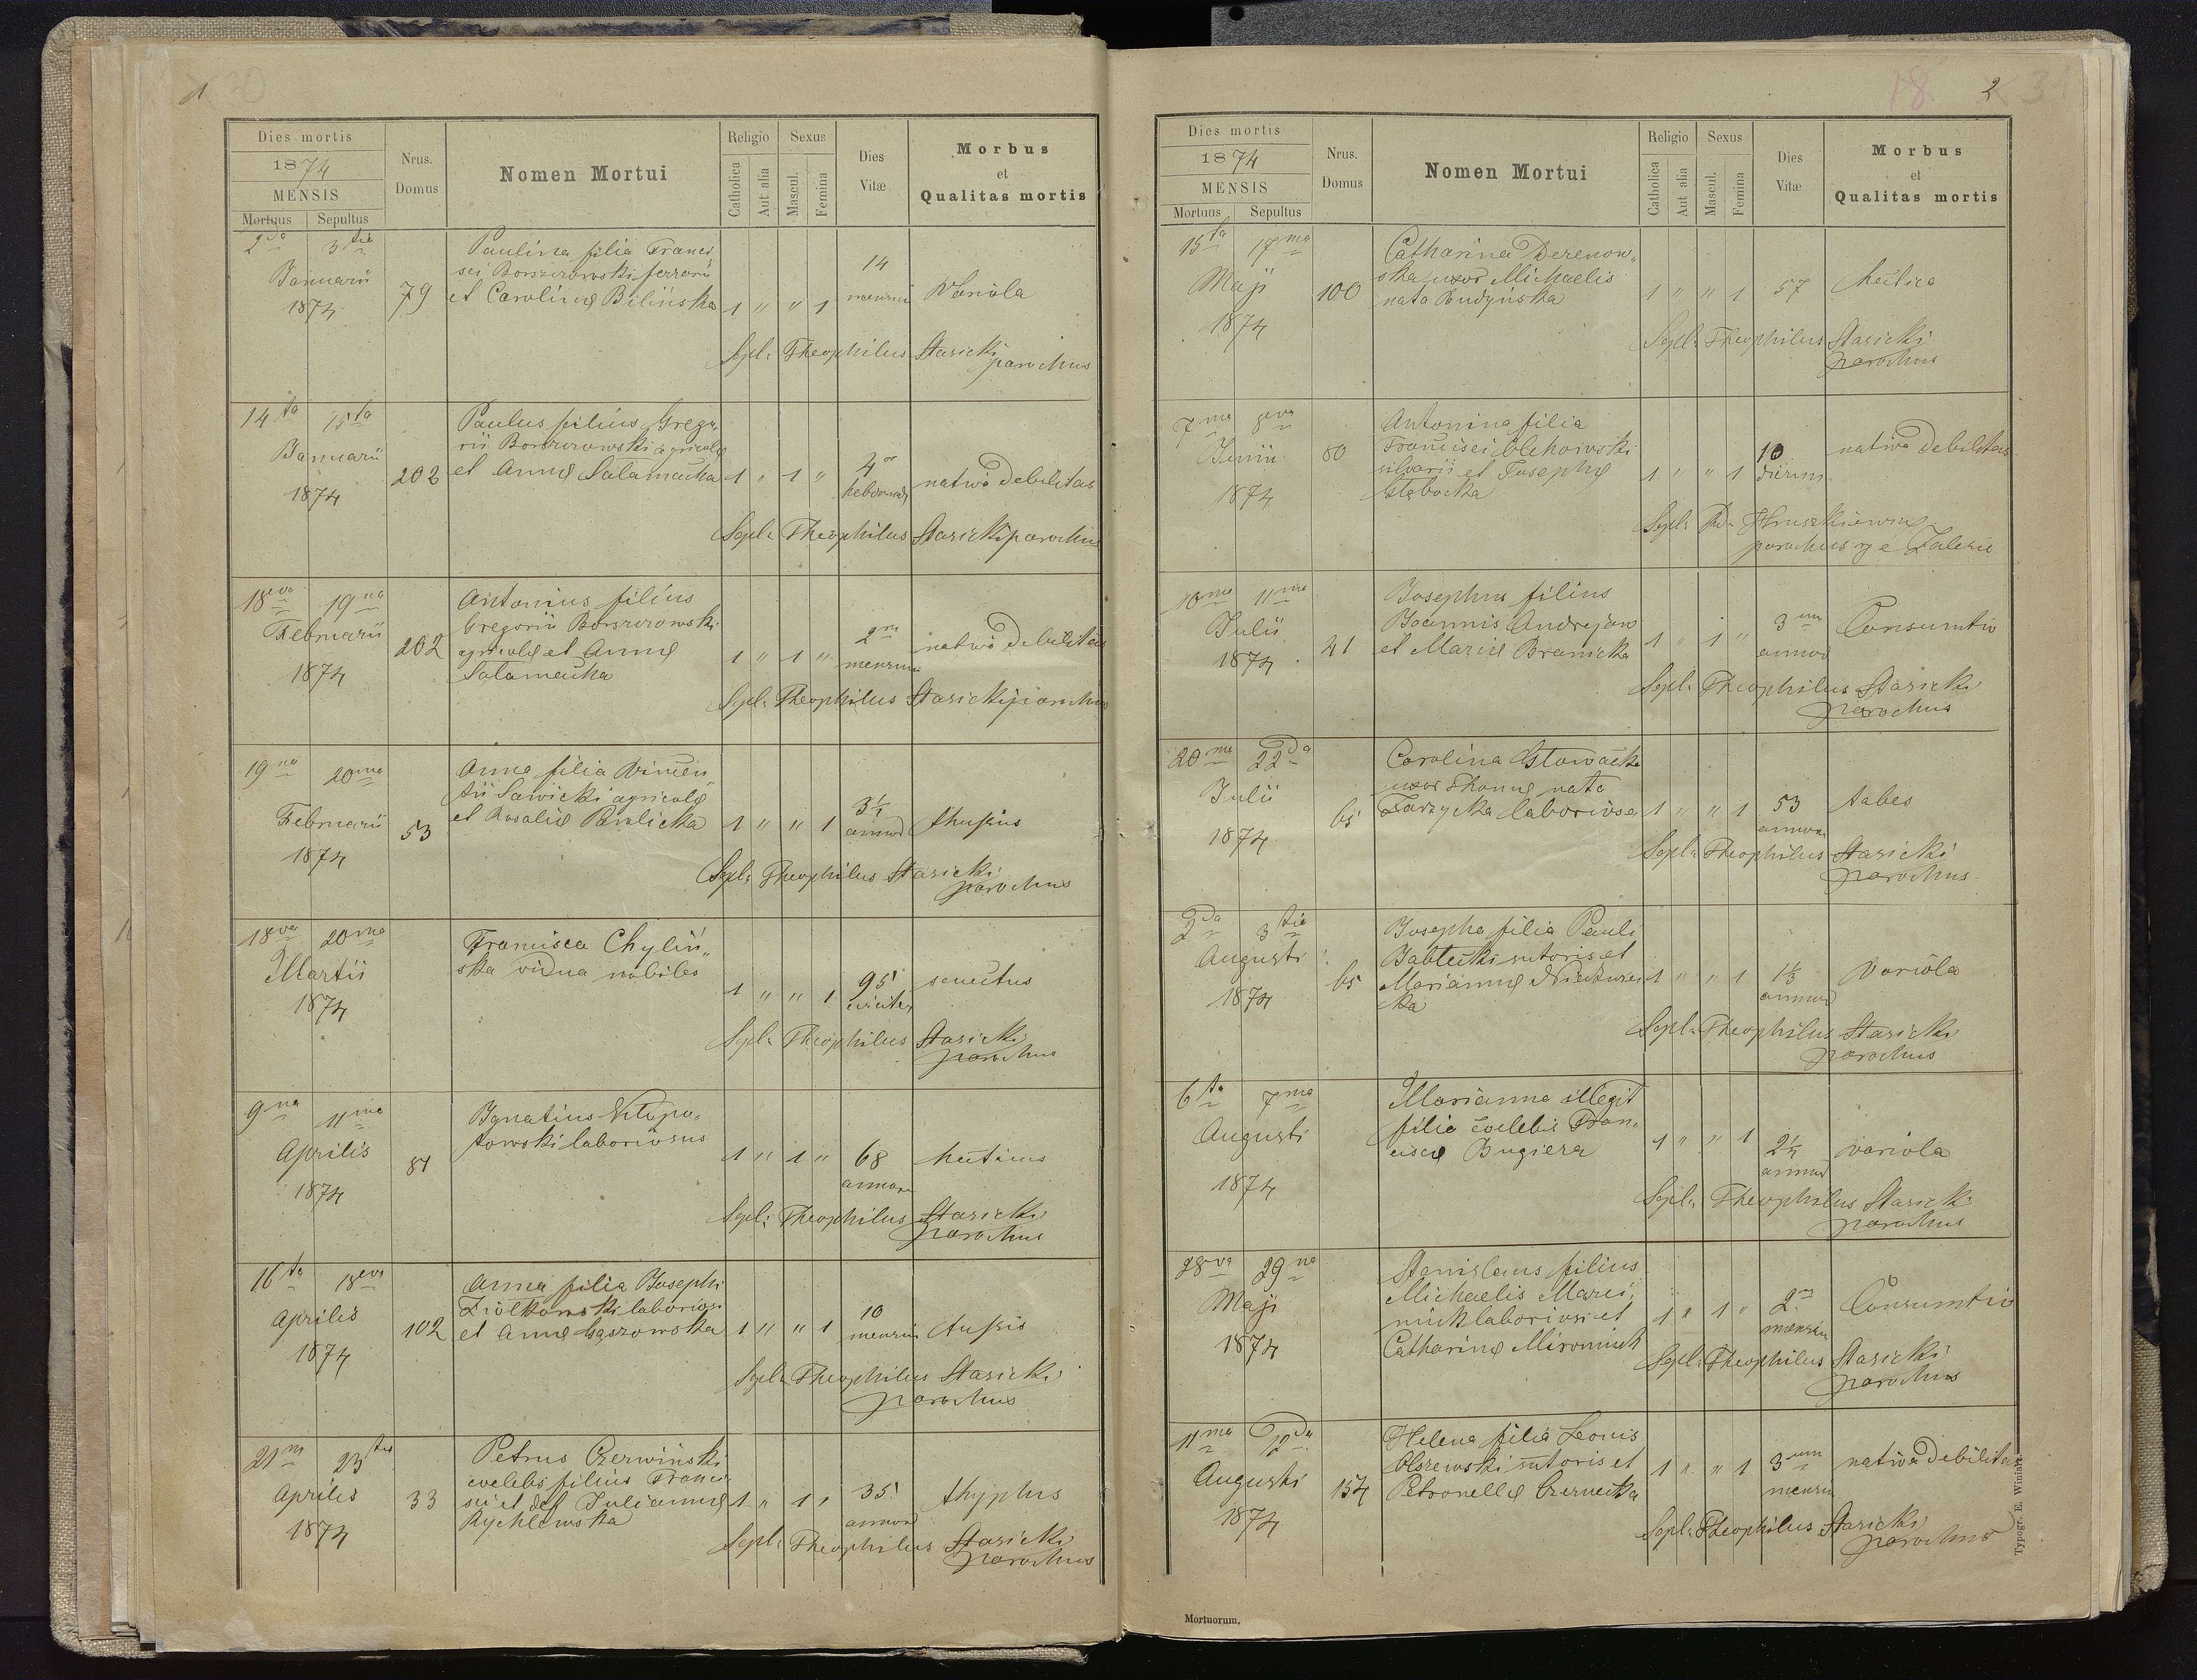 1
Dies mortis
1874
MENSIS
Mortuus Sepultus
Nrus. Domus
Nomen Mortui
Religio
Catholica
Aut alia
Sexus
Mascul.
Femina
Dies Vitæ
Morbus
et
Qualitas mortis
2da 3tia
Januarii
1874
79
Paulina filia Franci
sci Borszczowski
et Carolinę Bilińska
1 " " 1
14
mensium
Variola
Sepl: Theophilus Stasicki
parochus
14ta 15ta
Januarii
1874
202
Paulus filius Grego
rii Borszczowski agricolę
et Annę Salamacha
1 " 1 "
4or
hebdomad
nativa debilitas
Sepl: Theophilus Stasicki parochus
18va 19na
Februarii
1874
202
Antonius filius
Gregorii Borszczowski
agricolę et Annę
Salamacha
1 " 1 "
2
mensium
nativa debilitas
Sepl: Theophilus Stasicki parochus
19na 20ma
Februarii
1874
53
Anna filia Vincen
tii Sawicki agricolę
et Rosalię Pawlicka
1 " " 1
3½
annor
thussis
Sepl: Theophilus Stasicki
parochus
18va 20ma
Martii
1874
Francisca Chyliń
ska vidua nobiles
1 " " 1
95
circiter
senectus
Sepl: Theophilus Stasicki
parochus
9na 11ma
Aprilis
1874
81
Ignatius
laboriosus
1 " 1 "
68
annor
hecticus
Sepl: Theophilus Stasicki
parochus
16ta 18va
Aprilis
1874
102
Anna filia Josephi
Ziółkowski laboriosi
et Annę Gąszowska
1 " " 1
10
mensium
tussis
Sepl: Theophilus Stasicki
parochus
21 23
Aprilis
1874
33
Petrus Czerwiński
coelebs filius Franci
sci et def Juliannę
Rychlewska
1 " 1 "
35
annor
thyphus
Sepl: Theophilus Stasicki
parochus
18
2
31
Dies mortis
1874
MENSIS
Mortuus Sepultus
Nrus. Domus
Nomen Mortui
Religio
Catholica
Aut alia
Sexus
Mascul.
Femina
Dies Vitæ
Morbus
et
Qualitas mortis
15ta 17ma
Maji
1874
100
Catharina Derenow
ska uxor Michaelis
nata Budyńska
1 " " 1
57
hectica
Sepl: Theophilus Stasicki
parochus
7ma 8va
Junii
1874
80
Antonina filia
Francisci Olchowski
silvarii et Josephę
Głębocka
1 " " 1
10
dierum
nativa debilitas
Sepl: Hruszkiewicz
parochus
10ma 11ma
Julii
1874
21
Josephus filius
Joannis Andrejów
et Marię Branicka
1 " 1 "
3um
annor
Consumtio
Sepl: Theophilus Stasicki
parochus
20ma 22da
Julii
1874
65
Carolina Słowacka
uxor Thomę nata
Zarzycka laboriosa
1 " " 1
53
annor
tabes
Sepl: Theophilus Stasicki
parochus
2da 3tia
Augusti
1874
65
Josepha filia Pauli
Jabłecki sutoris et
Mariannę
1 " " 1
annor
Variola
Sepl: Theophilus Stasicki
parochus
6ta 7ma
Augusti
1874
Marianna illegit
filia coelebis Fran
ciscę Bugiera
1 " " 1
2½
annor
variola
Sepl: Theophilus Stasicki
parochus
28va 29na
Maji
1874
Stanislaus filius
Michaelis Marci
niuk laboriosi et
Catharinę Mironiuk
1 " 1 "
2
mensium
Consumtio
Sepl: Theophilus Stasicki
parochus
11ma 12da
Augusti
1874
154
Helena filia Leonis
Olszewski sutoris et
Petronellę Czernecka
1 " " 1
3um
mensium
nativa debilitas
Sepl: Theophilus Stasicki
parochus
Mortuorum.
Typogr. E. Winiarz